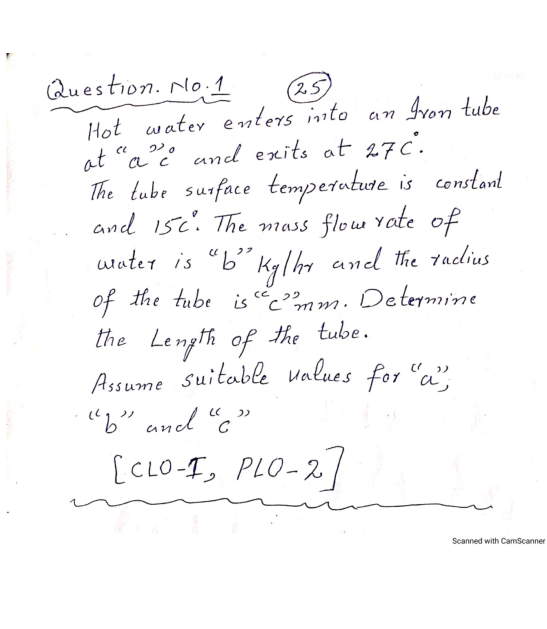 Question. No. 1 25
Hot water enters into an Iron tube
at "a" c° and exits at 27 C°.
The tube surface temperature is constant
and 15c°. The mass flow rate of
water is "b" Kg/hr and the radius
of the tube is "c" mm. Determine
the Length of the tube.
Assume suitable values for "a",
"b" and "c"
[CLO-I, PLO-2]
Scanned with CamScanner